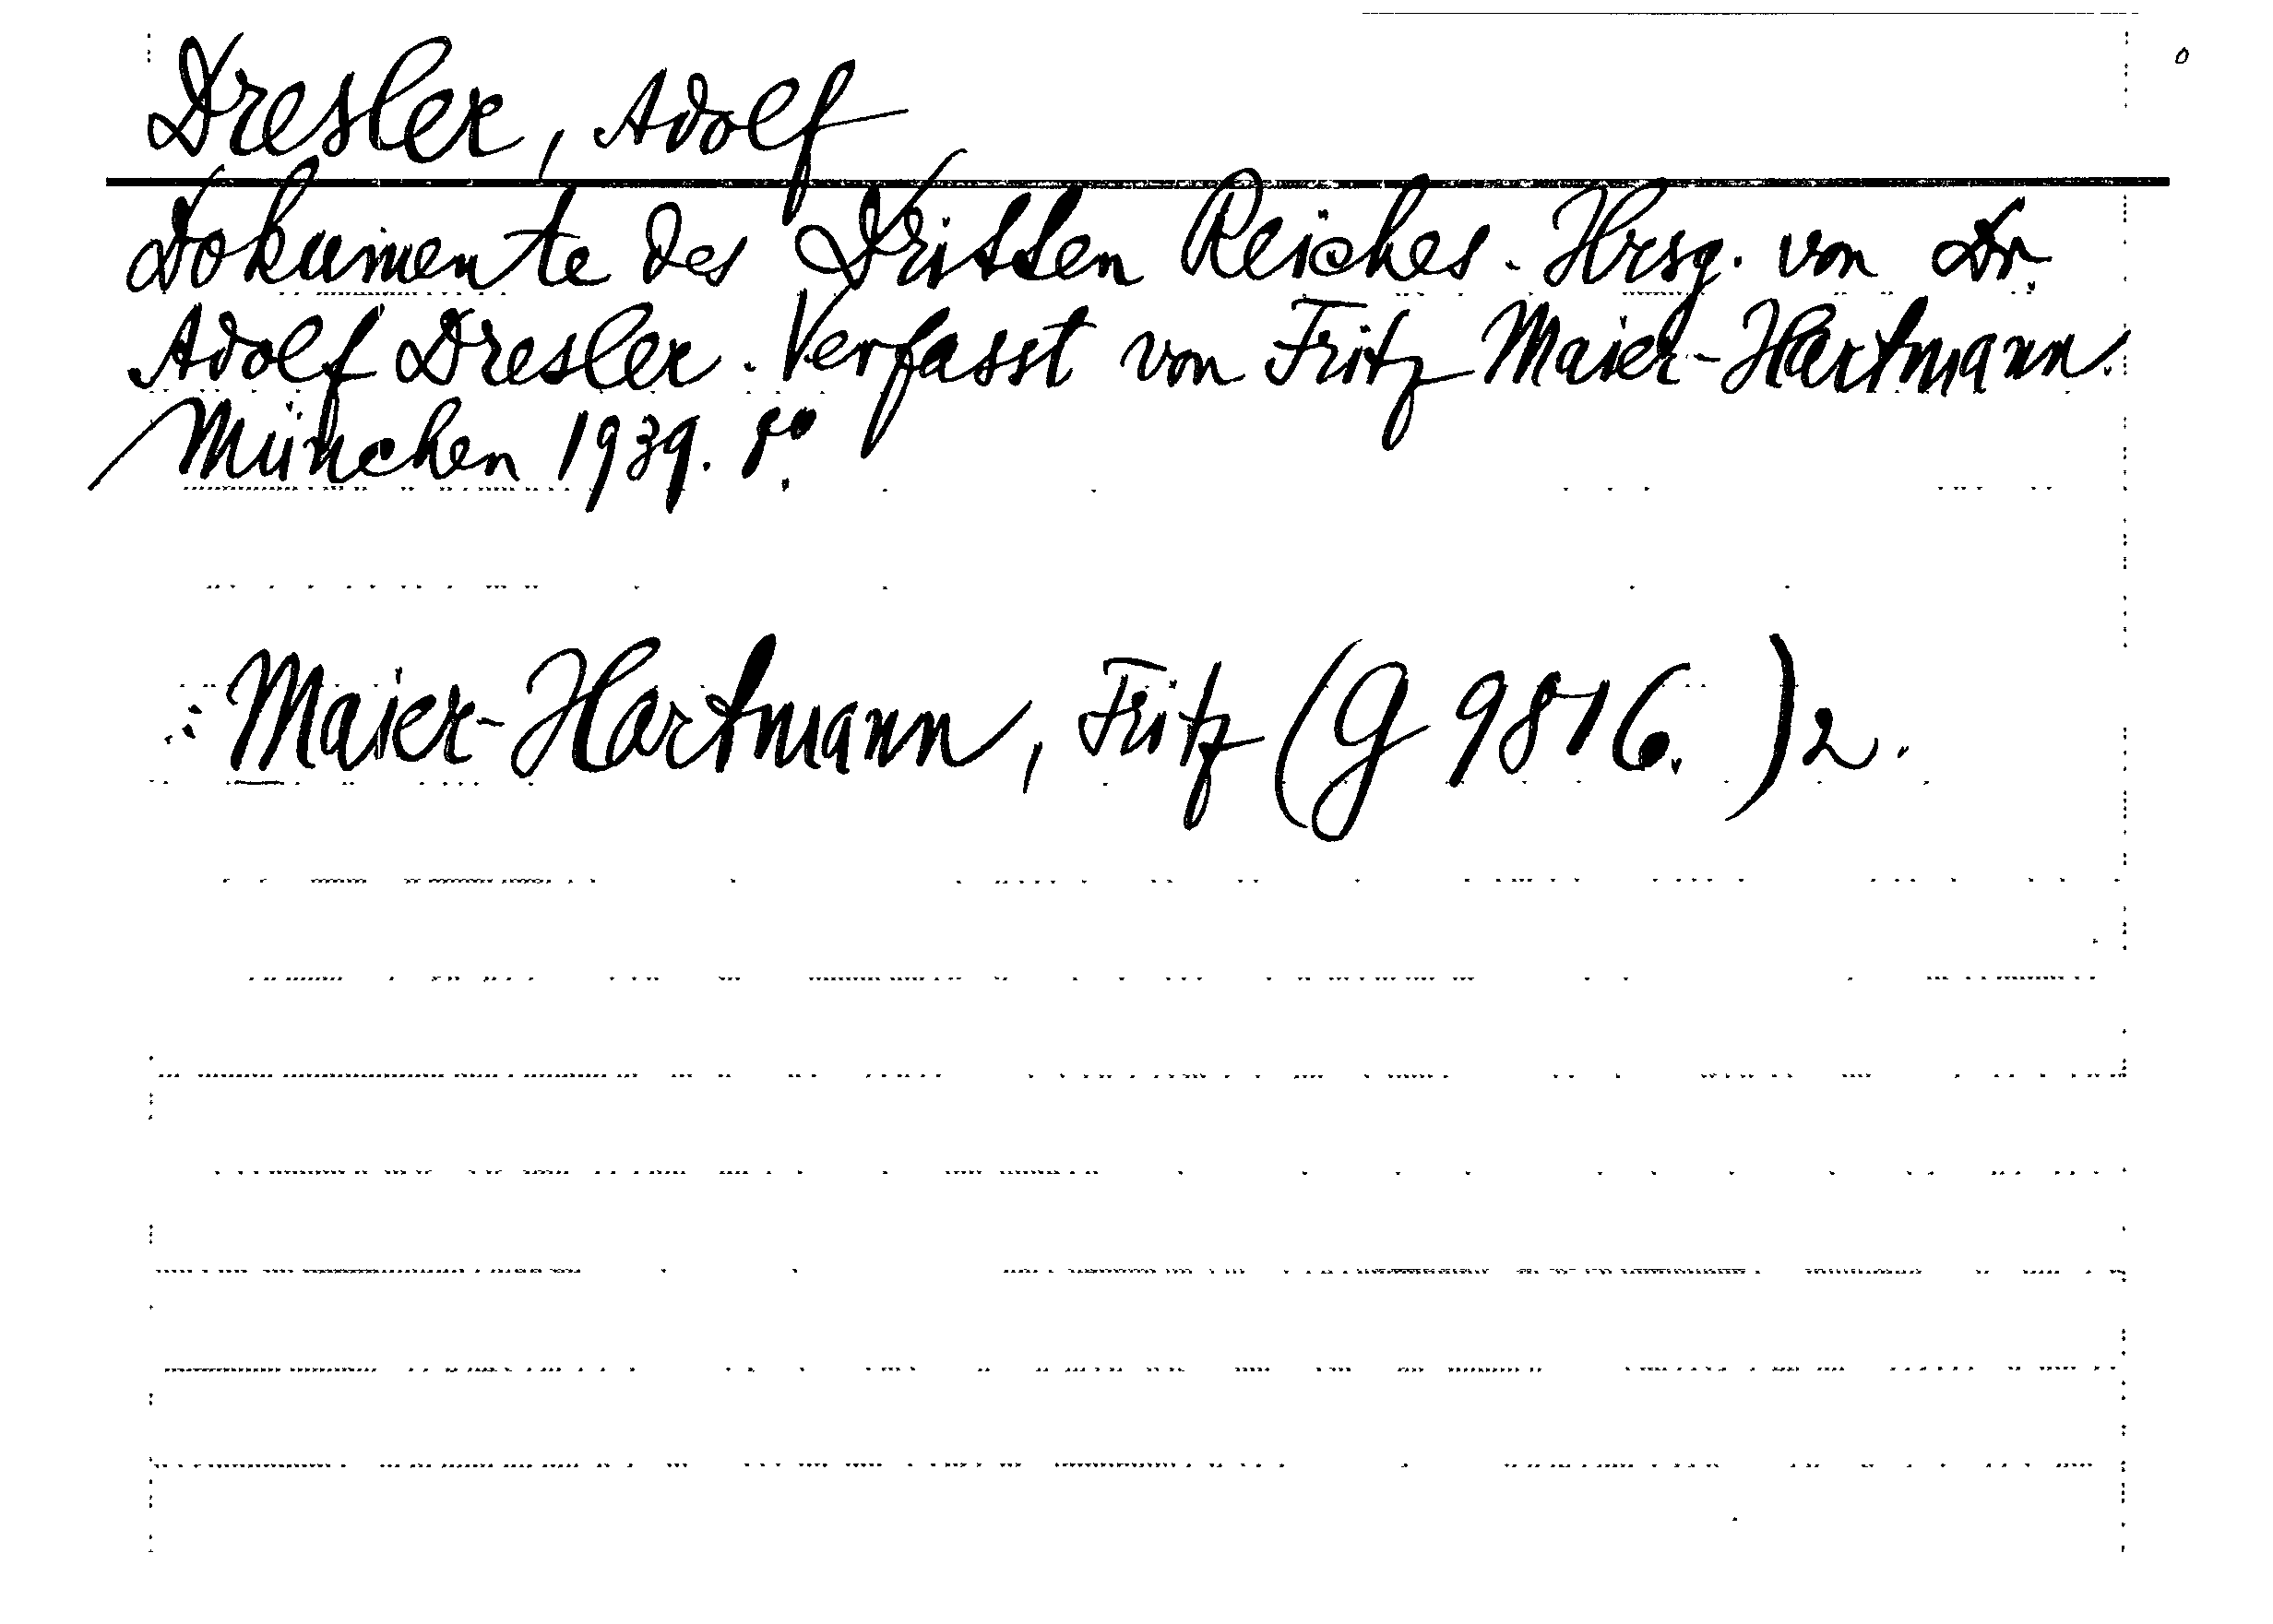 Dresler, Adolf
Dokumente des Dritten Reiches. Hrsg. von Dr.
Adolf Dresler. Verfasst von Fritz Maier-Hartmann.
München 1939. 8°.
Maier-Hartmann, Fritz (G 9816. )2.